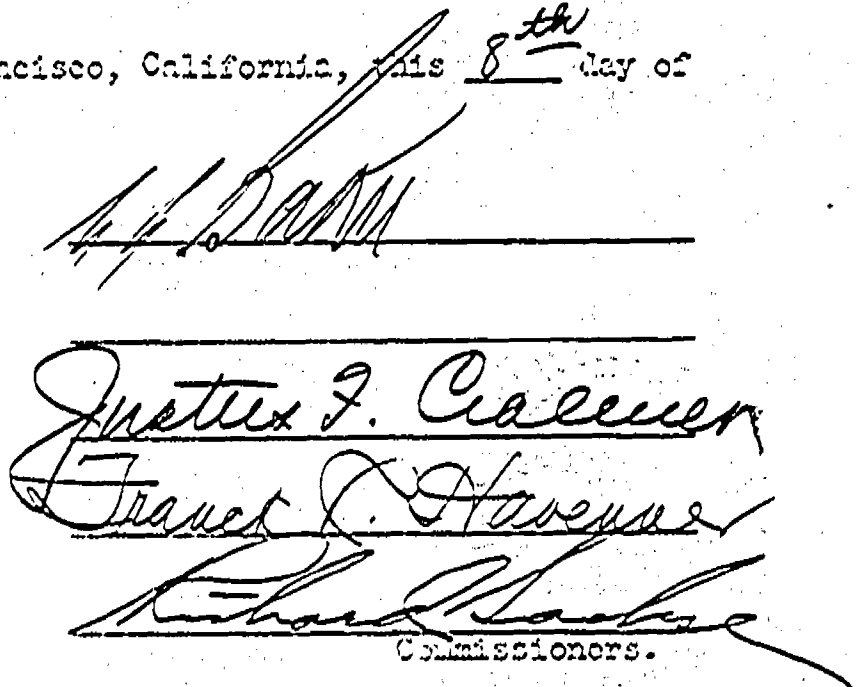 ncisco, California, this 8th day of
Justus F. Craemer
Franck R. Havenner
Richard Sachse
Commissioners.